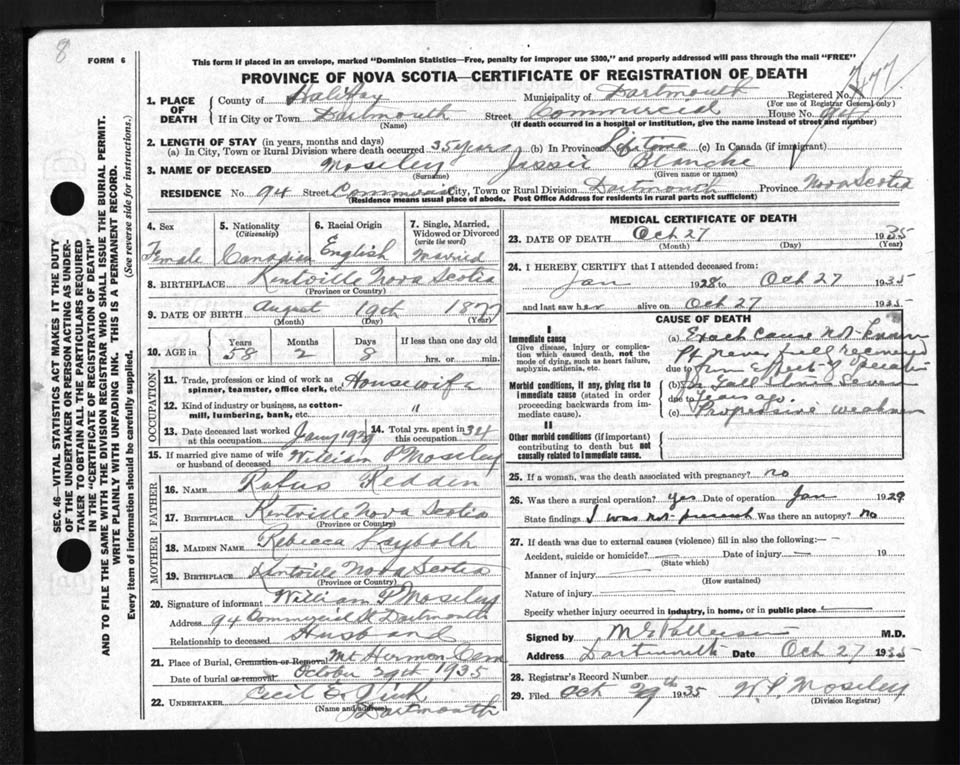 8
FORM 6
This form if placed in an envelope, marked "Dominion Statistics—Free, penalty for improper use $300," and properly addressed will pass through the mail "FREE"
PROVINCE OF NOVA SCOTIA—CERTIFICATE OF REGISTRATION OF DEATH
Registered No.
(For use of Registrar General only)
1. PLACE OF DEATH
County of Halifax Municipality of Dartmouth
If in City or Town Dartmouth Street Commercial House No. 94
(Name) (If death occurred in a hospital or institution, give the name instead of street and number)
2. LENGTH OF STAY (in years, months and days)
(a) In City, Town or Rural Division where death occurred 35 years (b) In Province Lifetime (c) In Canada (if immigrant)
3. NAME OF DECEASED Moseley Jessie Blanche
(Surname) (Given name or names)
RESIDENCE No. 94 Street Commercial City, Town or Rural Division Dartmouth Province Nova Scotia
(Residence means usual place of abode. Post Office Address for residents in rural parts not sufficient)
SEC. 46—VITAL STATISTICS ACT MAKES IT THE DUTY
OF THE UNDERTAKER OR PERSON ACTING AS UNDER-
TAKER TO OBTAIN ALL THE PARTICULARS REQUIRED
IN THE "CERTIFICATE OF REGISTRATION OF DEATH"
AND TO FILE THE SAME WITH THE DIVISION REGISTRAR WHO SHALL ISSUE THE BURIAL PERMIT.
WRITE PLAINLY WITH UNFADING INK. THIS IS A PERMANENT RECORD.
Every item of information should be carefully supplied. (See reverse side for instructions.)
4. Sex 5. Nationality (Citizenship) 6. Racial Origin 7. Single, Married, Widowed or Divorced (write the word)
Female Canadian English Married
8. BIRTHPLACE Kentville Nova Scotia
(Province or Country)
9. DATE OF BIRTH August 19th 1877
(Month) (Day) (Year)
10. AGE in Years 58 Months 2 Days 8 If less than one day old hrs. or min.
OCCUPATION
11. Trade, profession or kind of work as spinner, teamster, office clerk, etc. Housewife
12. Kind of industry or business, as cotton-mill, lumbering, bank, etc. "
13. Date deceased last worked at this occupation Jany 1929 14. Total yrs. spent in this occupation 34
15. If married give name of wife or husband of deceased William P Moseley
FATHER
16. NAME Rufus Redden
17. BIRTHPLACE Kentville Nova Scotia
(Province or Country)
MOTHER
18. MAIDEN NAME Rebecca
19. BIRTHPLACE Kentville Nova Scotia
(Province or Country)
20. Signature of informant William P Moseley
Address 94 Commercial St Dartmouth
Relationship to deceased Husband
21. Place of Burial, Cremation or Removal Mt Hermon Cem
Date of burial or removal October 29th 1935
22. UNDERTAKER Cecil E.
(Name and address) Dartmouth
MEDICAL CERTIFICATE OF DEATH
23. DATE OF DEATH Oct 27 1935
(Month) (Day) (Year)
24. I HEREBY CERTIFY that I attended deceased from:
Jan 1928 to Oct 27 1935
and last saw her alive on Oct 27 1935
CAUSE OF DEATH
I
Immediate cause
Give disease, injury or complication which caused death, not the mode of dying, such as heart failure, asphyxia, asthenia, etc.
(a) Exact cause not known
Pt never fully recovered
due to from Effect of Operation
Morbid conditions, if any, giving rise to immediate cause (stated in order proceeding backwards from immediate cause).
(b) Gall stones Seven
due to years ago.
(c) Progressive weakness
II
Other morbid conditions (if important) contributing to death but not causally related to immediate cause.
25. If a woman, was the death associated with pregnancy? no
26. Was there a surgical operation? yes Date of operation Jan 1929
State findings I was not present Was there an autopsy? no
27. If death was due to external causes (violence) fill in also the following:—
Accident, suicide or homicide? Date of injury 19
(State which)
Manner of injury
(How sustained)
Nature of injury
Specify whether injury occurred in industry, in home, or in public place
Signed by M D.
Address Dartmouth Date Oct 27 1935
28. Registrar's Record Number
29. Filed Oct 29th 1935 W P Moseley
(Division Registrar)